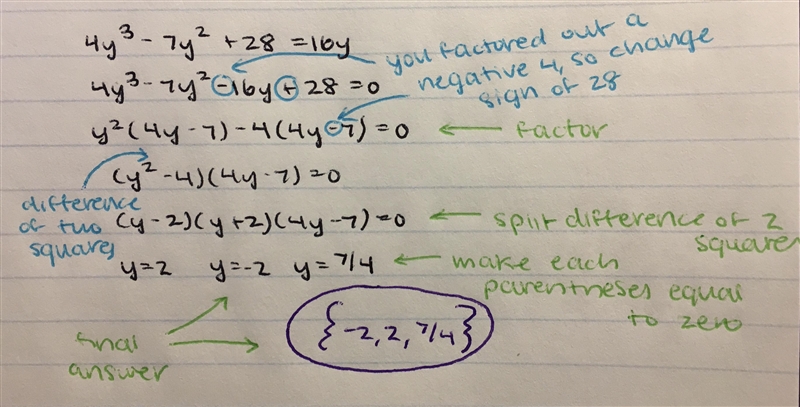 4y³ - 7y² + 28 = 16y
4y³ - 7y² - 16y + 28 = 0
you factored out a
negative 4, so change
sign of 28
y²(4y - 7) - 4(4y - 7) = 0
factor
(y² - 4)(4y - 7) = 0
difference
of two
squares
(y - 2)(y + 2)(4y - 7) = 0
split difference of 2
squares
y = 2 y = -2 y = 7/4
make each
parentheses equal
to zero
final
answer
{-2, 2, 7/4}